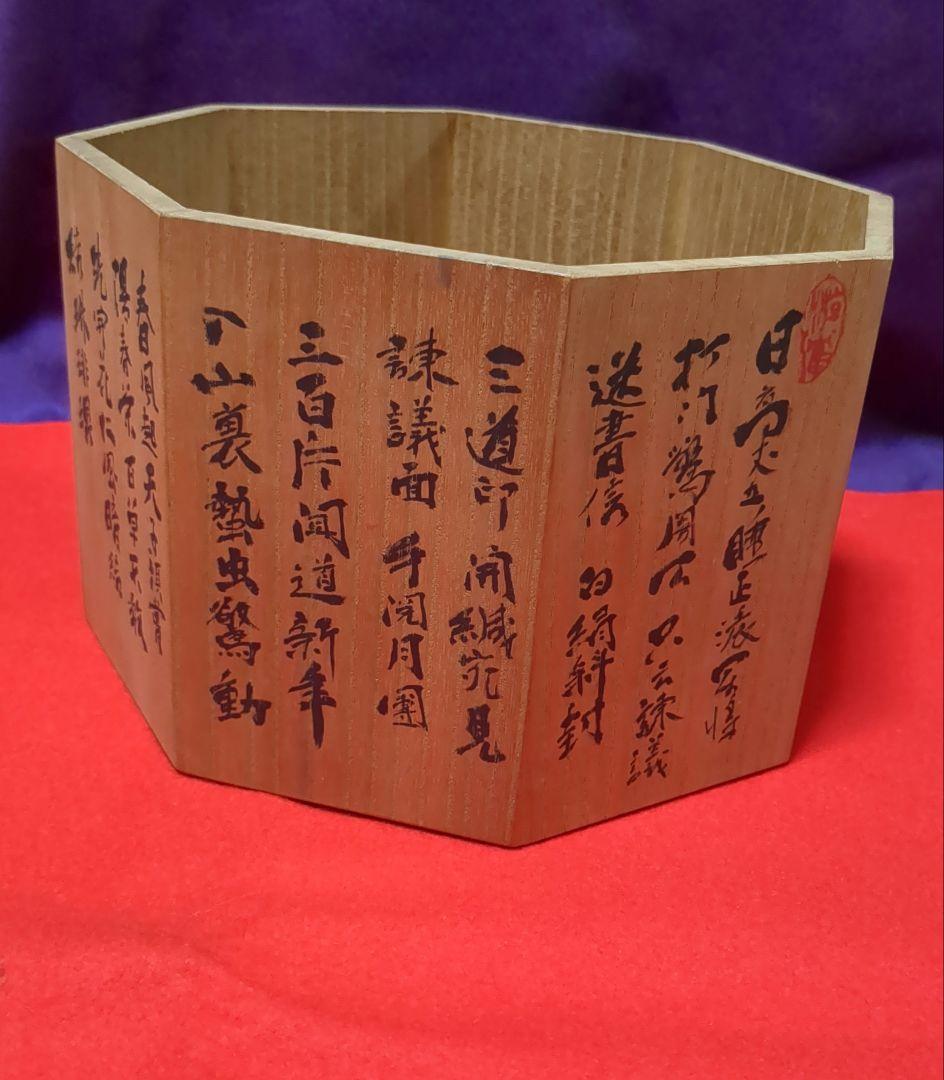 日高丈五睡正濃 軍将
打門驚周公 口云諫議
送書信 白絹斜封
三道印 開緘宛見
諫議面 手閲月團
三百片 聞道新年
入山裏 蟄虫驚動
春風起 天子須嘗
陽春茶 百草不敢
先開花 仁風暗結
珠琲瓃